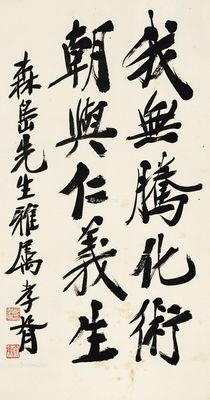 我無騰化術
朝與仁義生
森岳先生雅屬孝胥